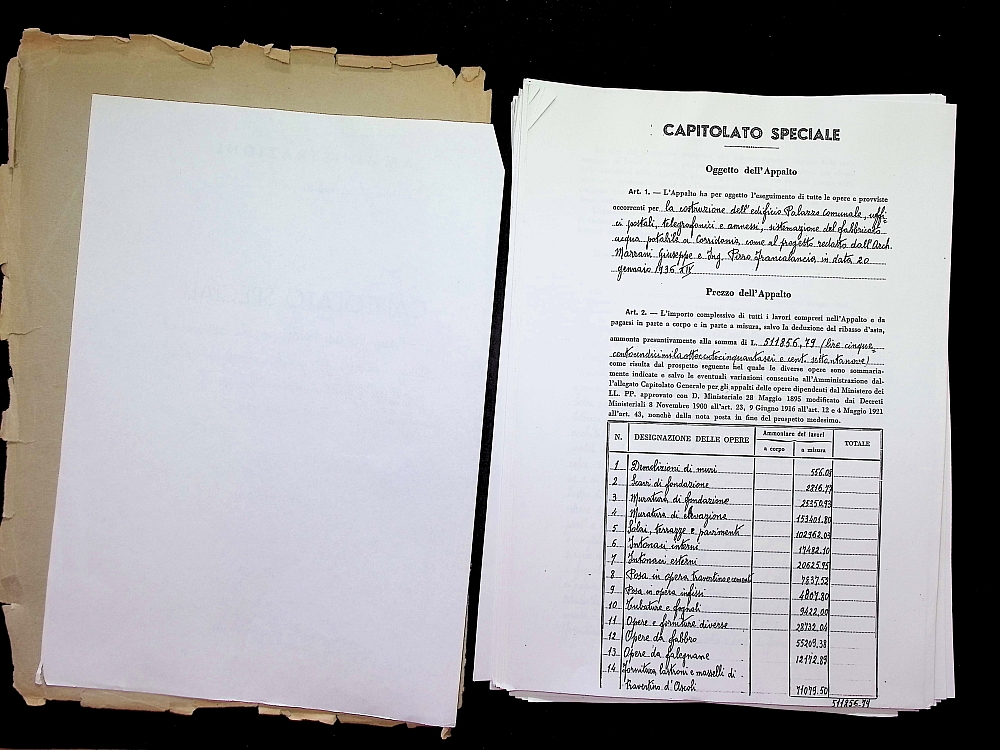 CAPITOLATO SPECIALE
Oggetto dell'Appalto
Art. 1. — L'Appalto ha per oggetto l'eseguimento di tutte le opere e provviste
occorrenti per la costruzione dell'edificio Palazzo Comunale, uffi-
ci postali, telegrafonici e annessi, sistemazione del fabbricato
acqua potabile a Corridonia, come al progetto redatto dall'Arch.
Marrani Giuseppe e Ing. Pirro Francalancia in data 20
gennaio 1936 XIV
Prezzo dell'Appalto
Art. 2. — L'importo complessivo di tutti i lavori compresi nell'Appalto e da
pagarsi in parte a corpo e in parte a misura, salvo la deduzione del ribasso d'asta,
ammonta presuntivamente alla somma di L. 511856,79 (lire cinque-
centoundicimilaottocentocinquantasei e cent. settantanove)
come risulta dal prospetto seguente nel quale le diverse opere sono sommaria-
mente indicate e salvo le eventuali variazioni consentite all'Amministrazione dal-
l'allegato Capitolato Generale per gli appalti delle opere dipendenti dal Ministero dei
LL. PP. approvato con D. Ministeriale 28 Maggio 1895 modificato dai Decreti
Ministeriali 8 Novembre 1900 all'art. 23, 9 Giugno 1916 all'art. 12 e 4 Maggio 1921
all'art. 43, nonchè dalla nota posta in fine del prospetto medesimo.
N. DESIGNAZIONE DELLE OPERE Ammontare dei lavori TOTALE
a corpo a misura
1 Demolizioni di muri 556.08
2 Scavi di fondazione 2816.77
3 Muratura di fondazione 25350.93
4 Muratura di elevazione 153401.80
5 Solai, terrazze e pavimenti 102962.03
6 Intonaci interni 17482.10
7 Intonaci esterni 20625.95
8 Posa in opera travertino e cementi 7837.52
9 Posa in opera infissi 4807.80
10 Tubature e fognoli 9422.00
11 Opere e forniture diverse 28732.04
12 Opere da fabbro 55209.38
13 Opere da falegname 12172.89
14 Fornitura lastroni e masselli di
Travertino d'Ascoli 71079.50
511856.79